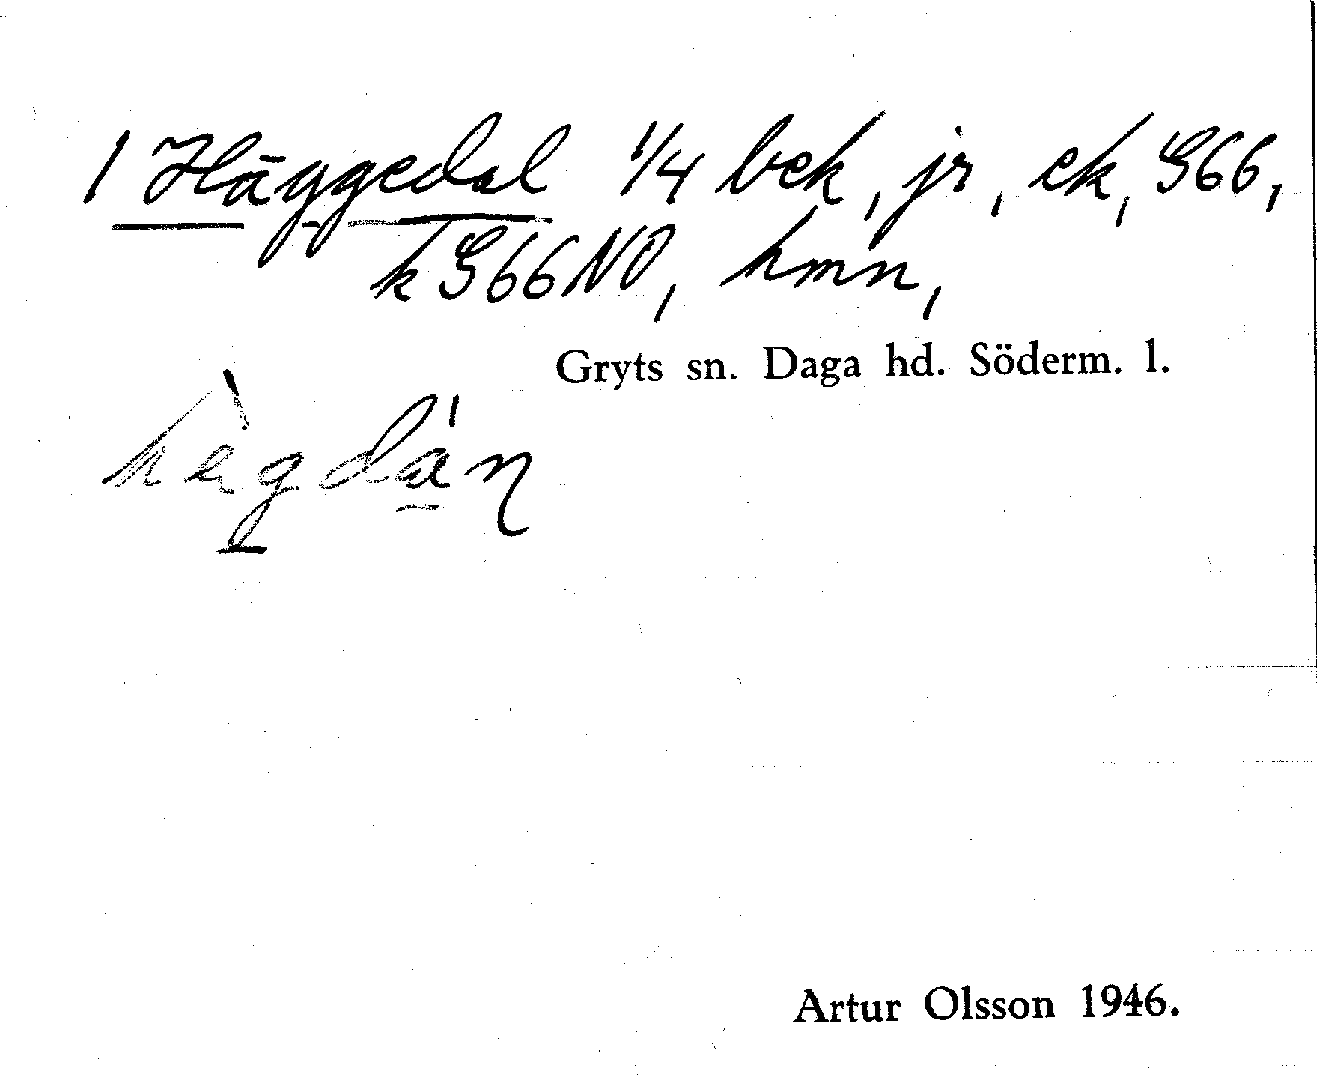 1 Häggedal 1/4 bek, jr, ek, G66,
k G66NO, hmn,
Gryts sn. Daga hd. Söderm. l.
hègdán
Artur Olsson 1946.